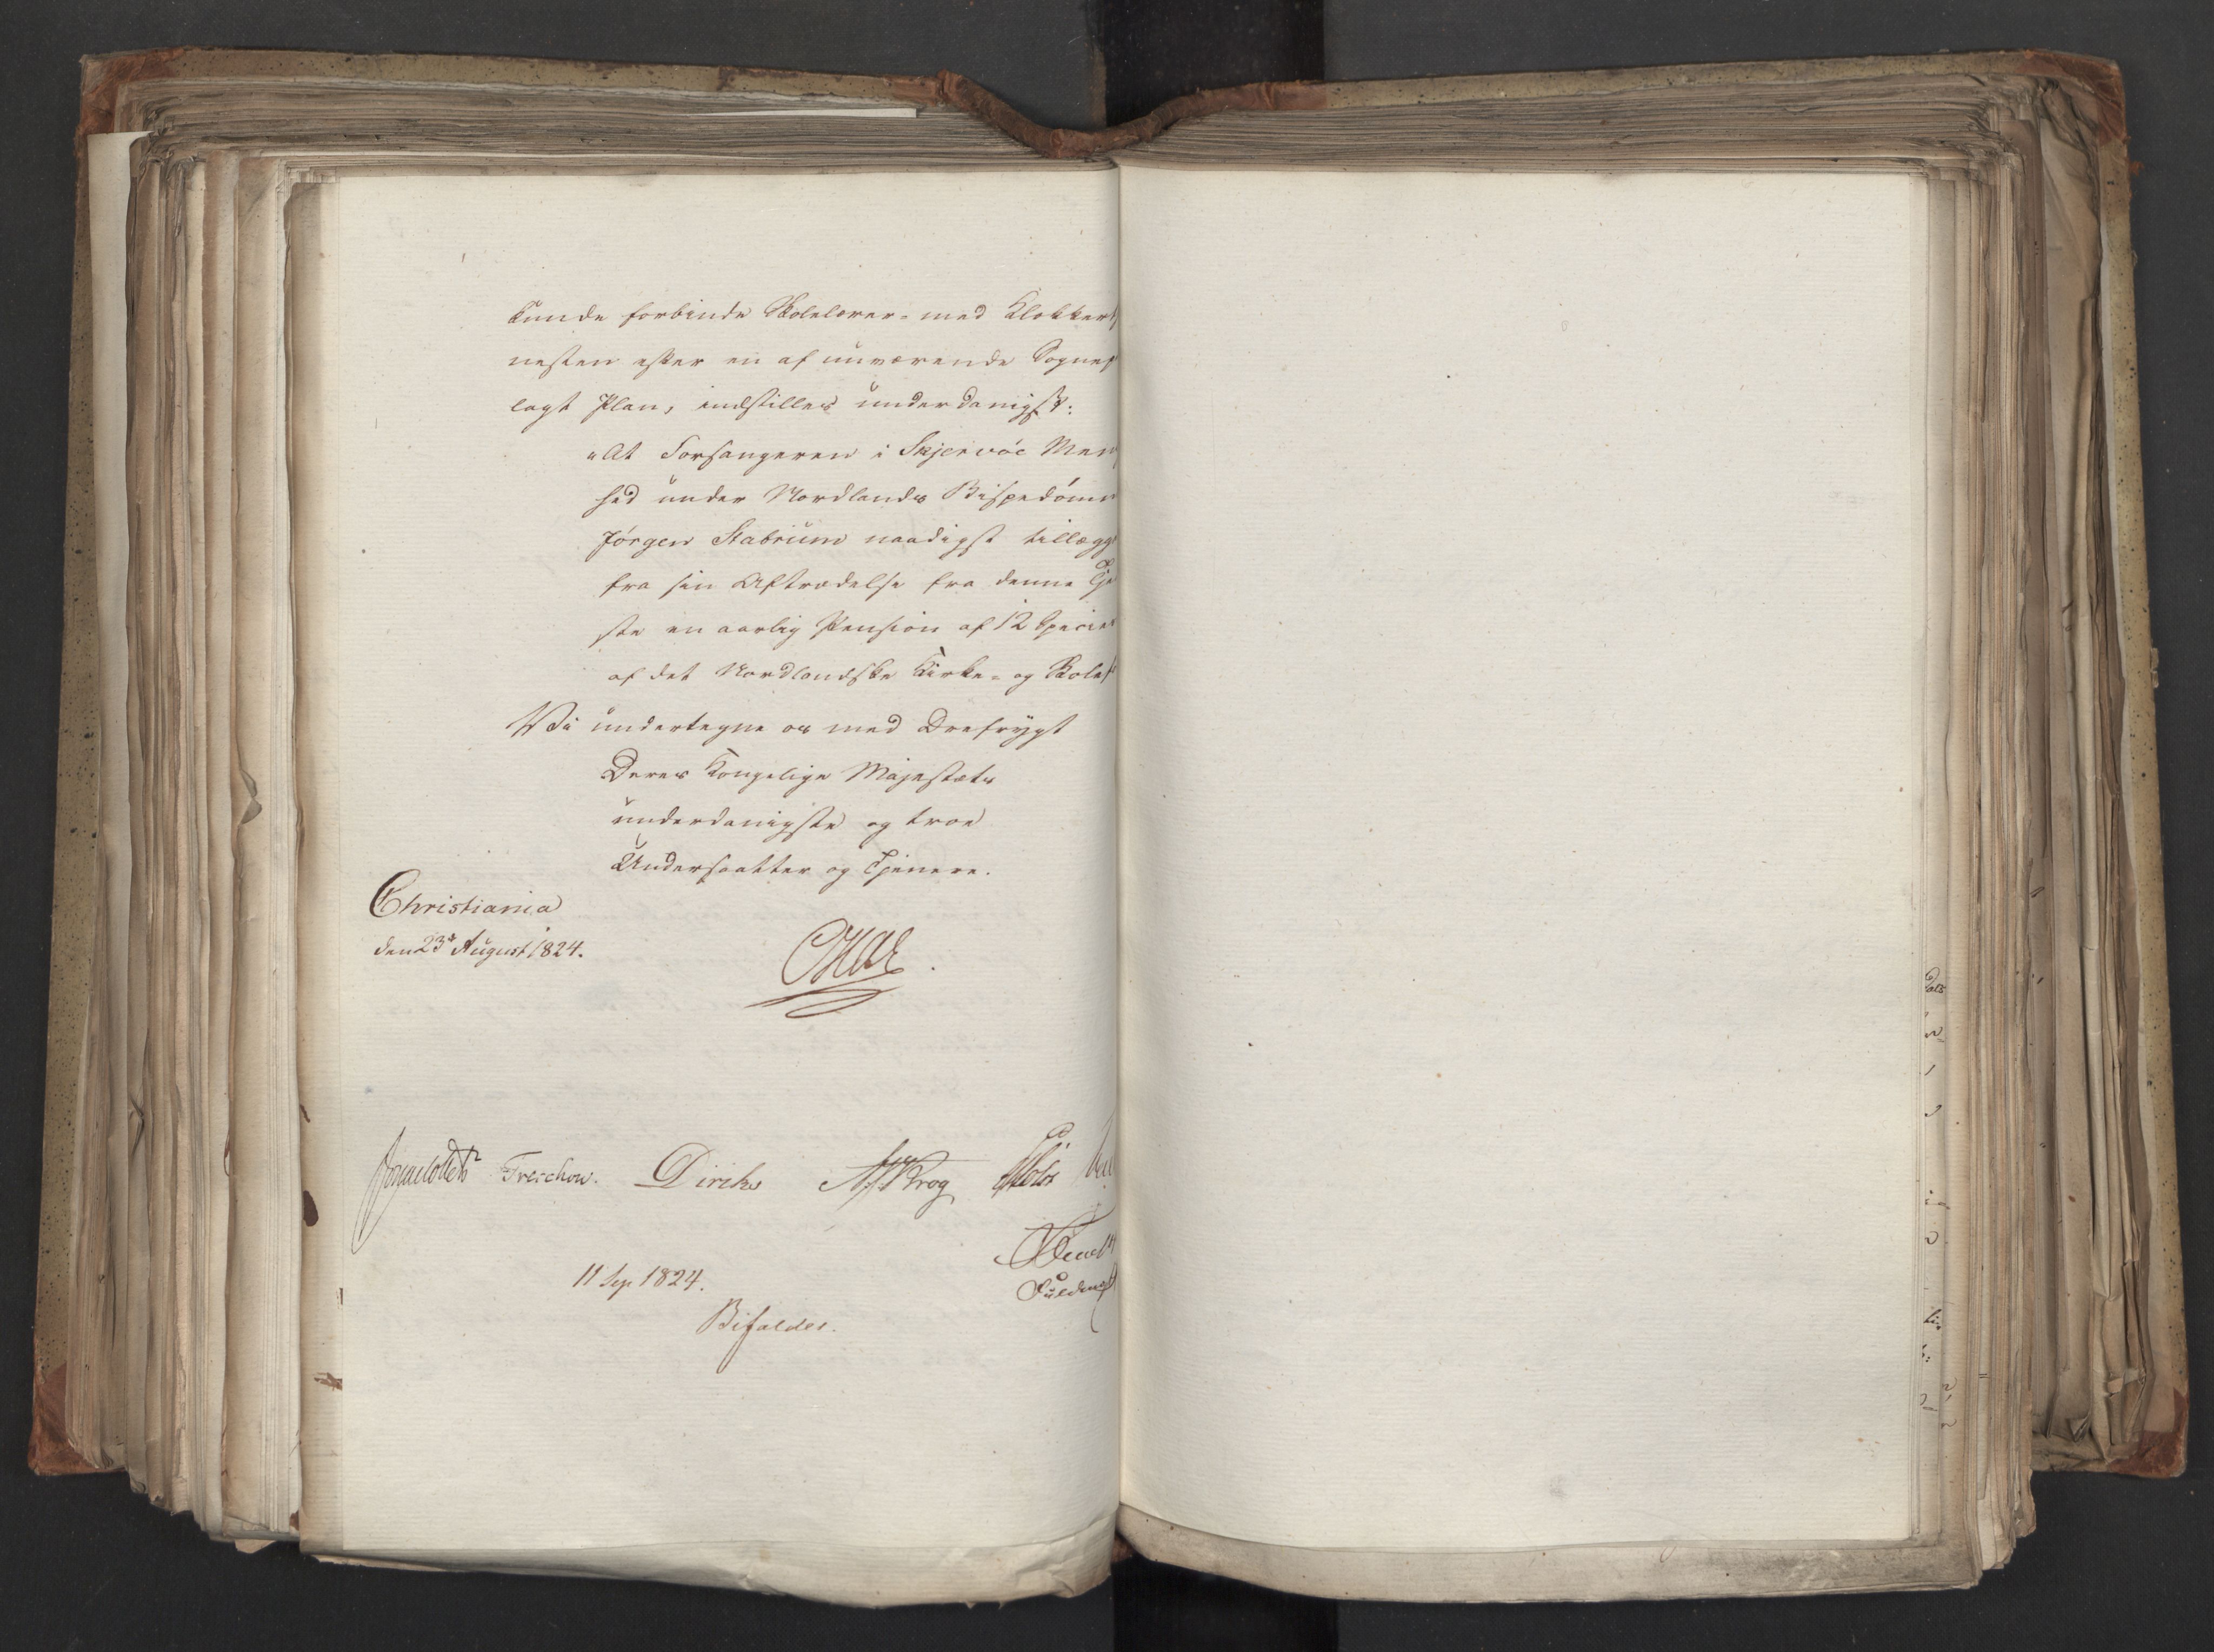 kunde forbinde Skolelærer- med Klokkert
nesten efter en af nuværende Sognep
lagt Plan, indstilles underdanigst:
"At Forsangeren i Skjervöe Men
hed under Nordlands Bispedömm
Jörgen Stabrum naadigst tillægge
fra sin Aftrædelse fra denne Tje
ste en aarlig Pension af 12 Specie
af det Nordlandske Kirke- og Skolef
Vi undertegne os med Ærefrygt
Deres Kongelige Majestæts
underdanigste og troe
Undersaatter og Tjenere.
Christiania
den 23de August 1824.
Treschow. Diriks Krog
11 Sep 1824.
Bifaldes.